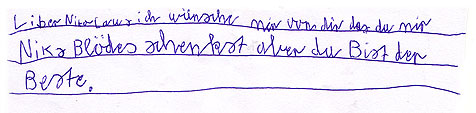 Liber Nikolaus ich wünsche mir von dir das du mir
Niks Blödes schenkst aber du Bist der
Beste.